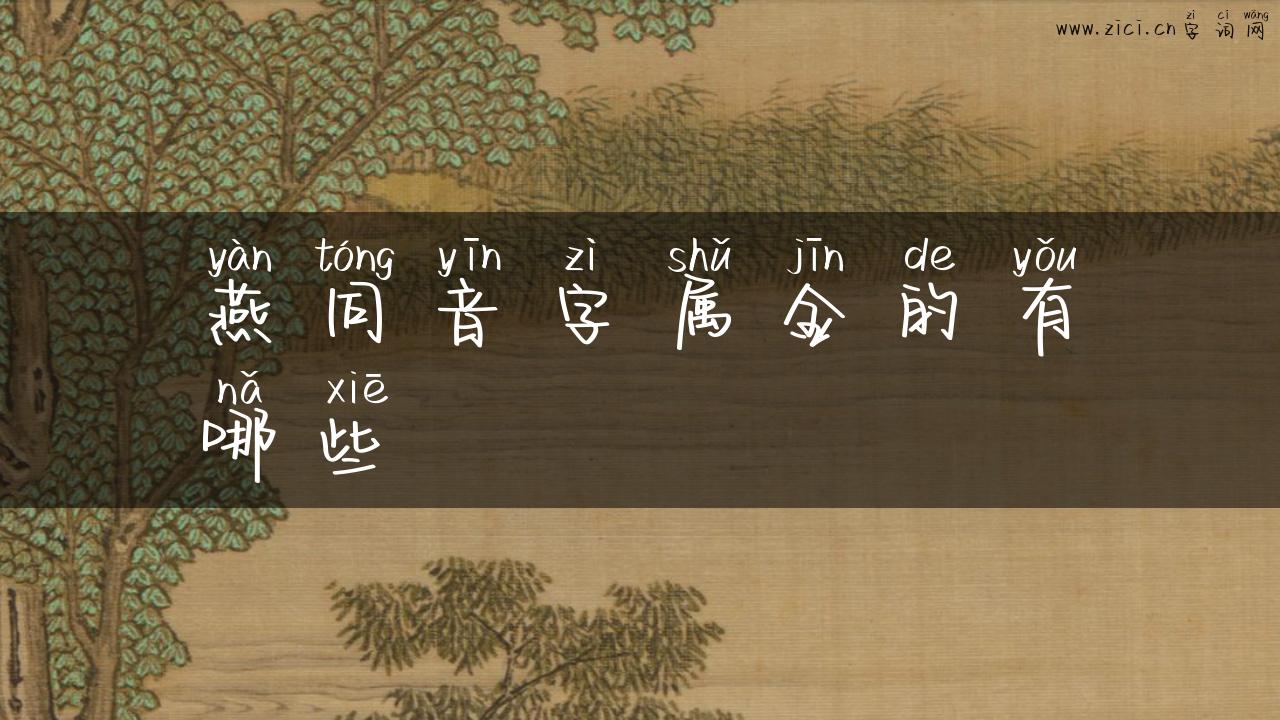 zì cí wǎng
www.zici.cn字词网
yàn tóng yīn zì shǔ jīn de yǒu
燕同音字属金的有
nǎ xiē
哪些